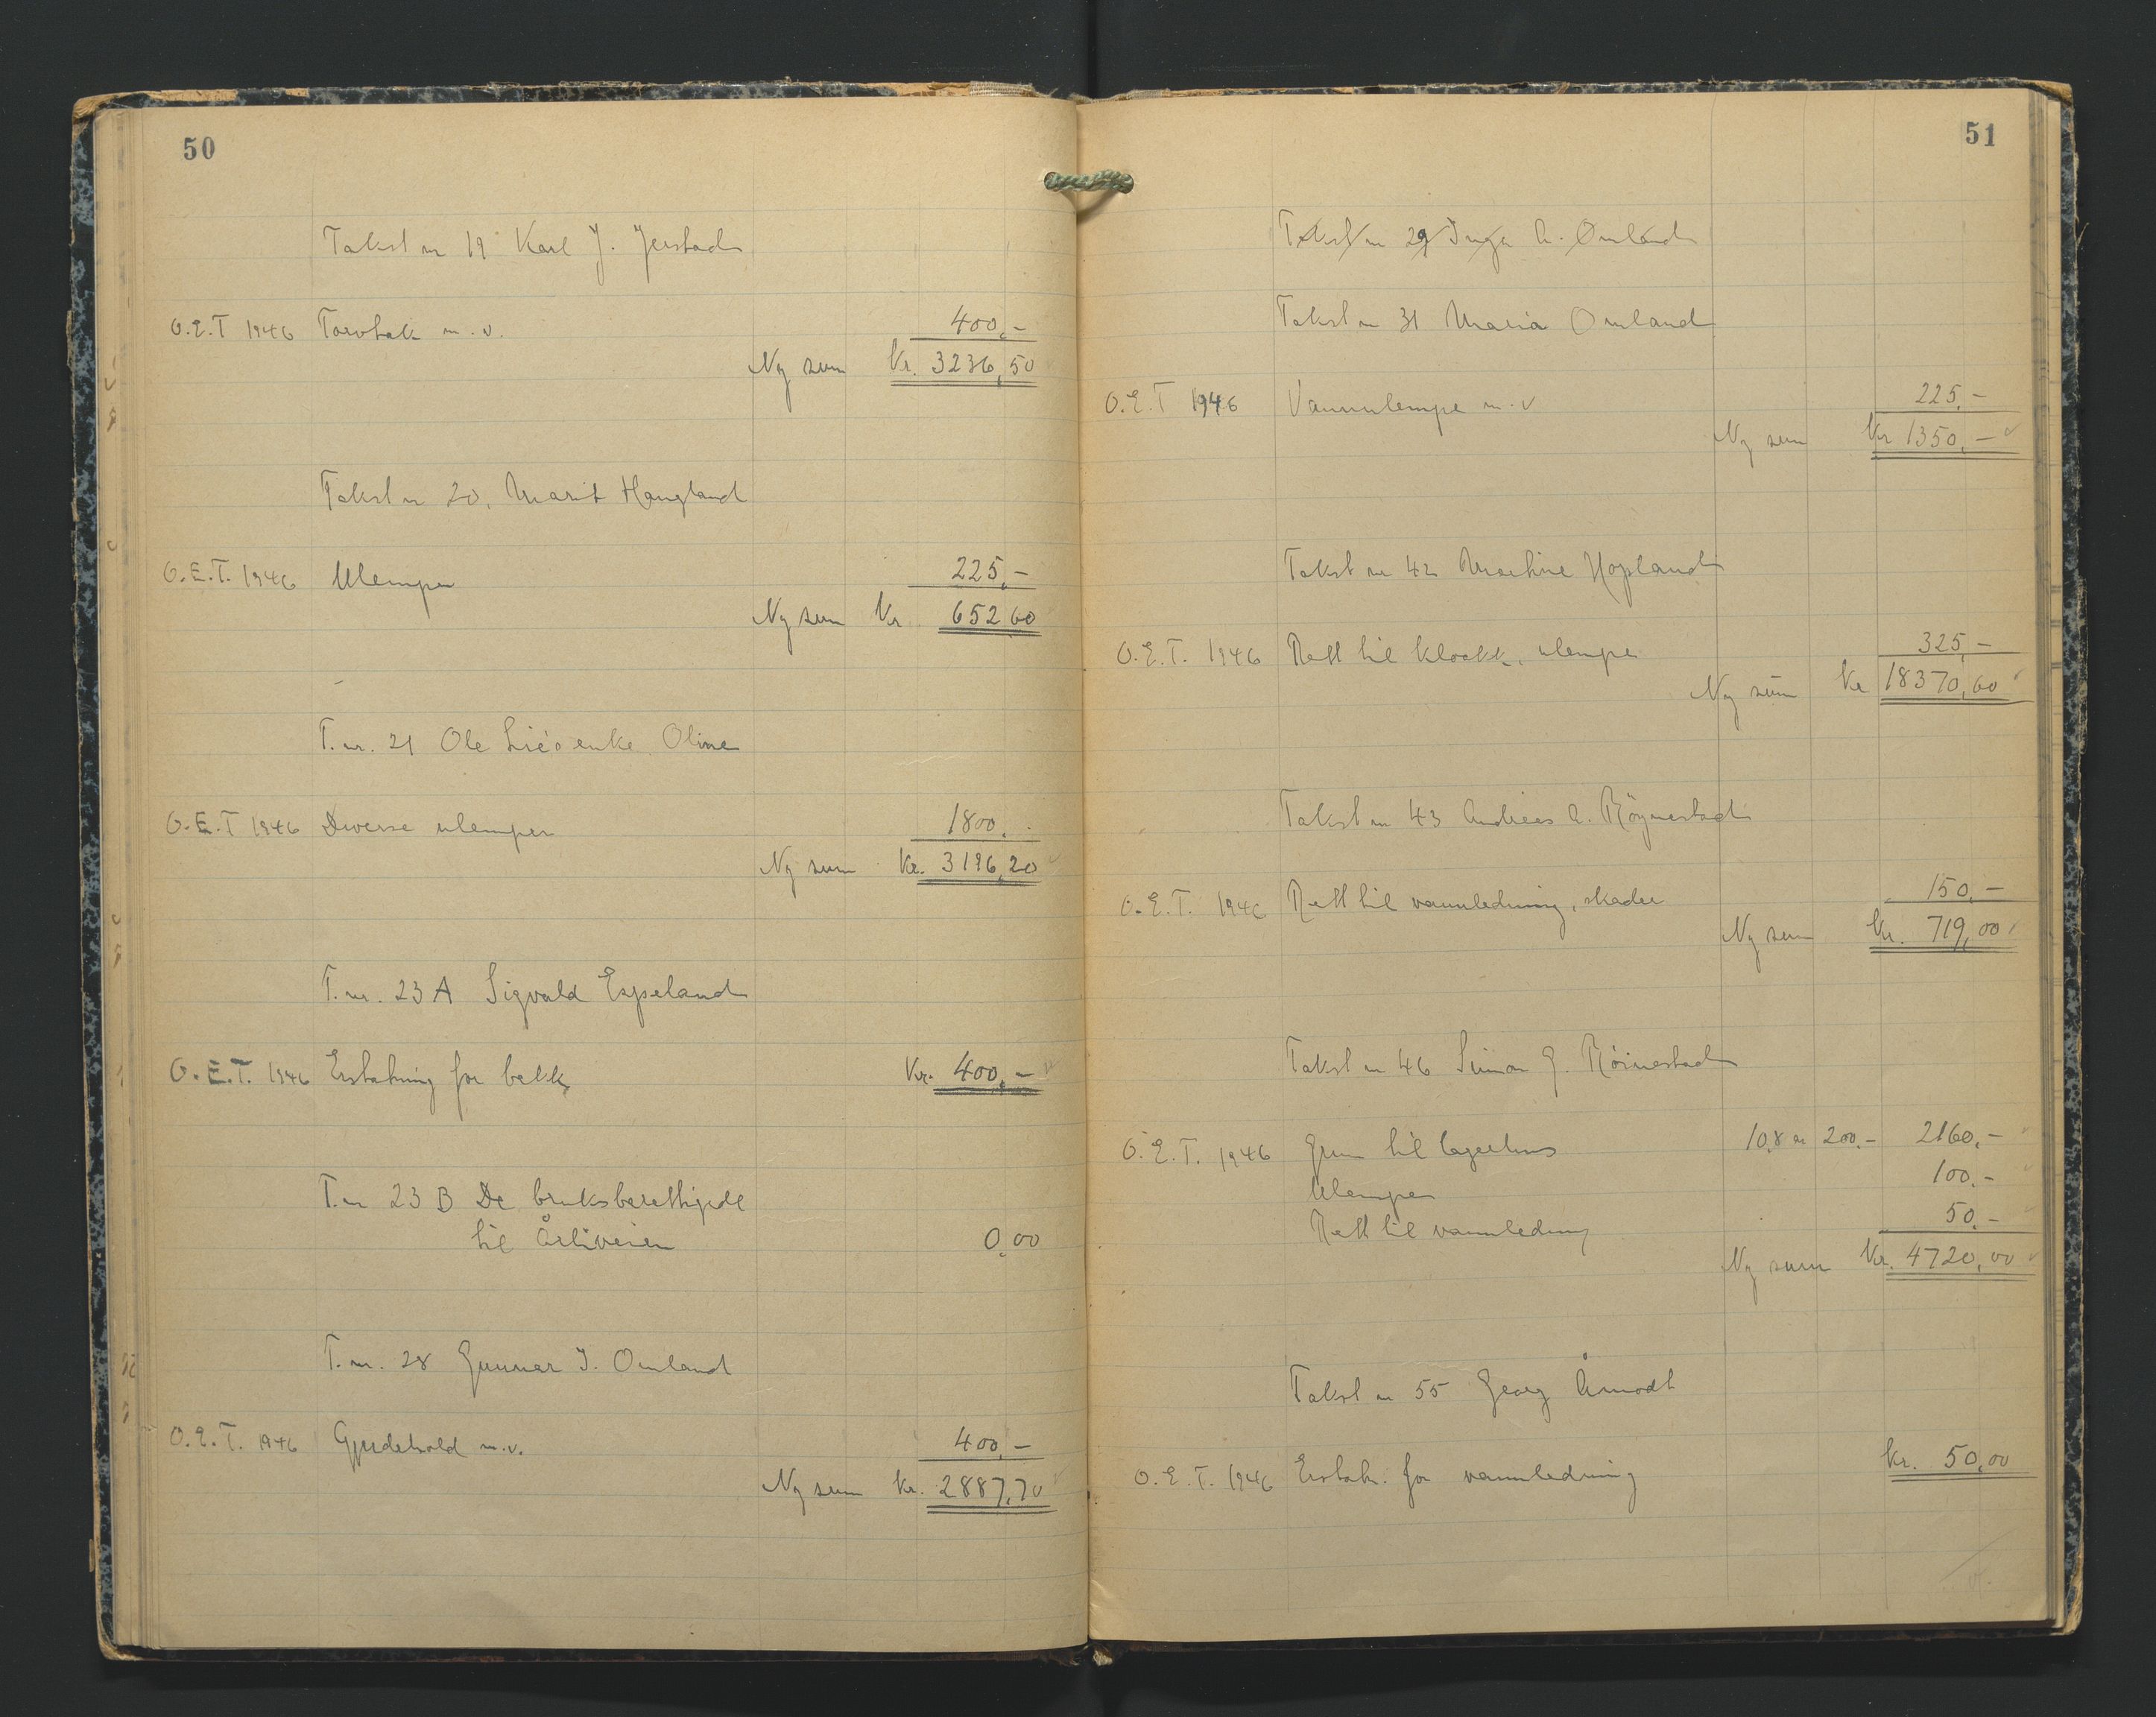 50
Takst nr 19 Karl J. Jerstad
O.E.T 1946 Torvtak m.v. 400,-
Ny sum Kr. 3236,50
Takst nr 20, Marit Haugland
O.E.T. 1946 Ulemper 225,-
Ny sum Kr 652,60
T. nr. 21 Ole Lie's enke Oline
O.E.T 1946 Diverse ulemper 1800,-
Ny sum Kr. 3196,20
T. nr. 23 A Sigvald Espeland
O.E.T. 1946 Erstatning for bekk Kr. 400,-
T. nr 23 B De bruksberettigede
til Årliveien 0,00
T. nr. 28 Gunnar J. Omland
O.E.T. 1946 Gjerdehold m.v. 400,-
Ny sum Kr. 2887,70
51
Takst nr 29 Inga A. Omland
Takst nr 31 Maria Omland
O.E.T 1946 Vannulempe m.v 225,-
Ny sum Kr 1350,-
Takst nr 42 Mathine Hopland
O.E.T. 1946 Rett til kloakk, ulemper 325,-
Ny sum Kr 18370,60
Takst nr 43 Andreas A. Röynestad
O.E.T. 1946 Rett til vannledning, skader 150,-
Ny sum Kr. 719,00
Takst nr 46 Simon G. Röinestad
O.E.T. 1946 Grunn til lagerhus 10,8 ar 200.- 2160,-
Ulemper 100.-
Rett til vannledning 50,-
Ny sum Kr. 4720,00
Takst nr 55 Georg Åmodt
O.E.T. 1946 Erstatn. for vannledning Kr. 50,00